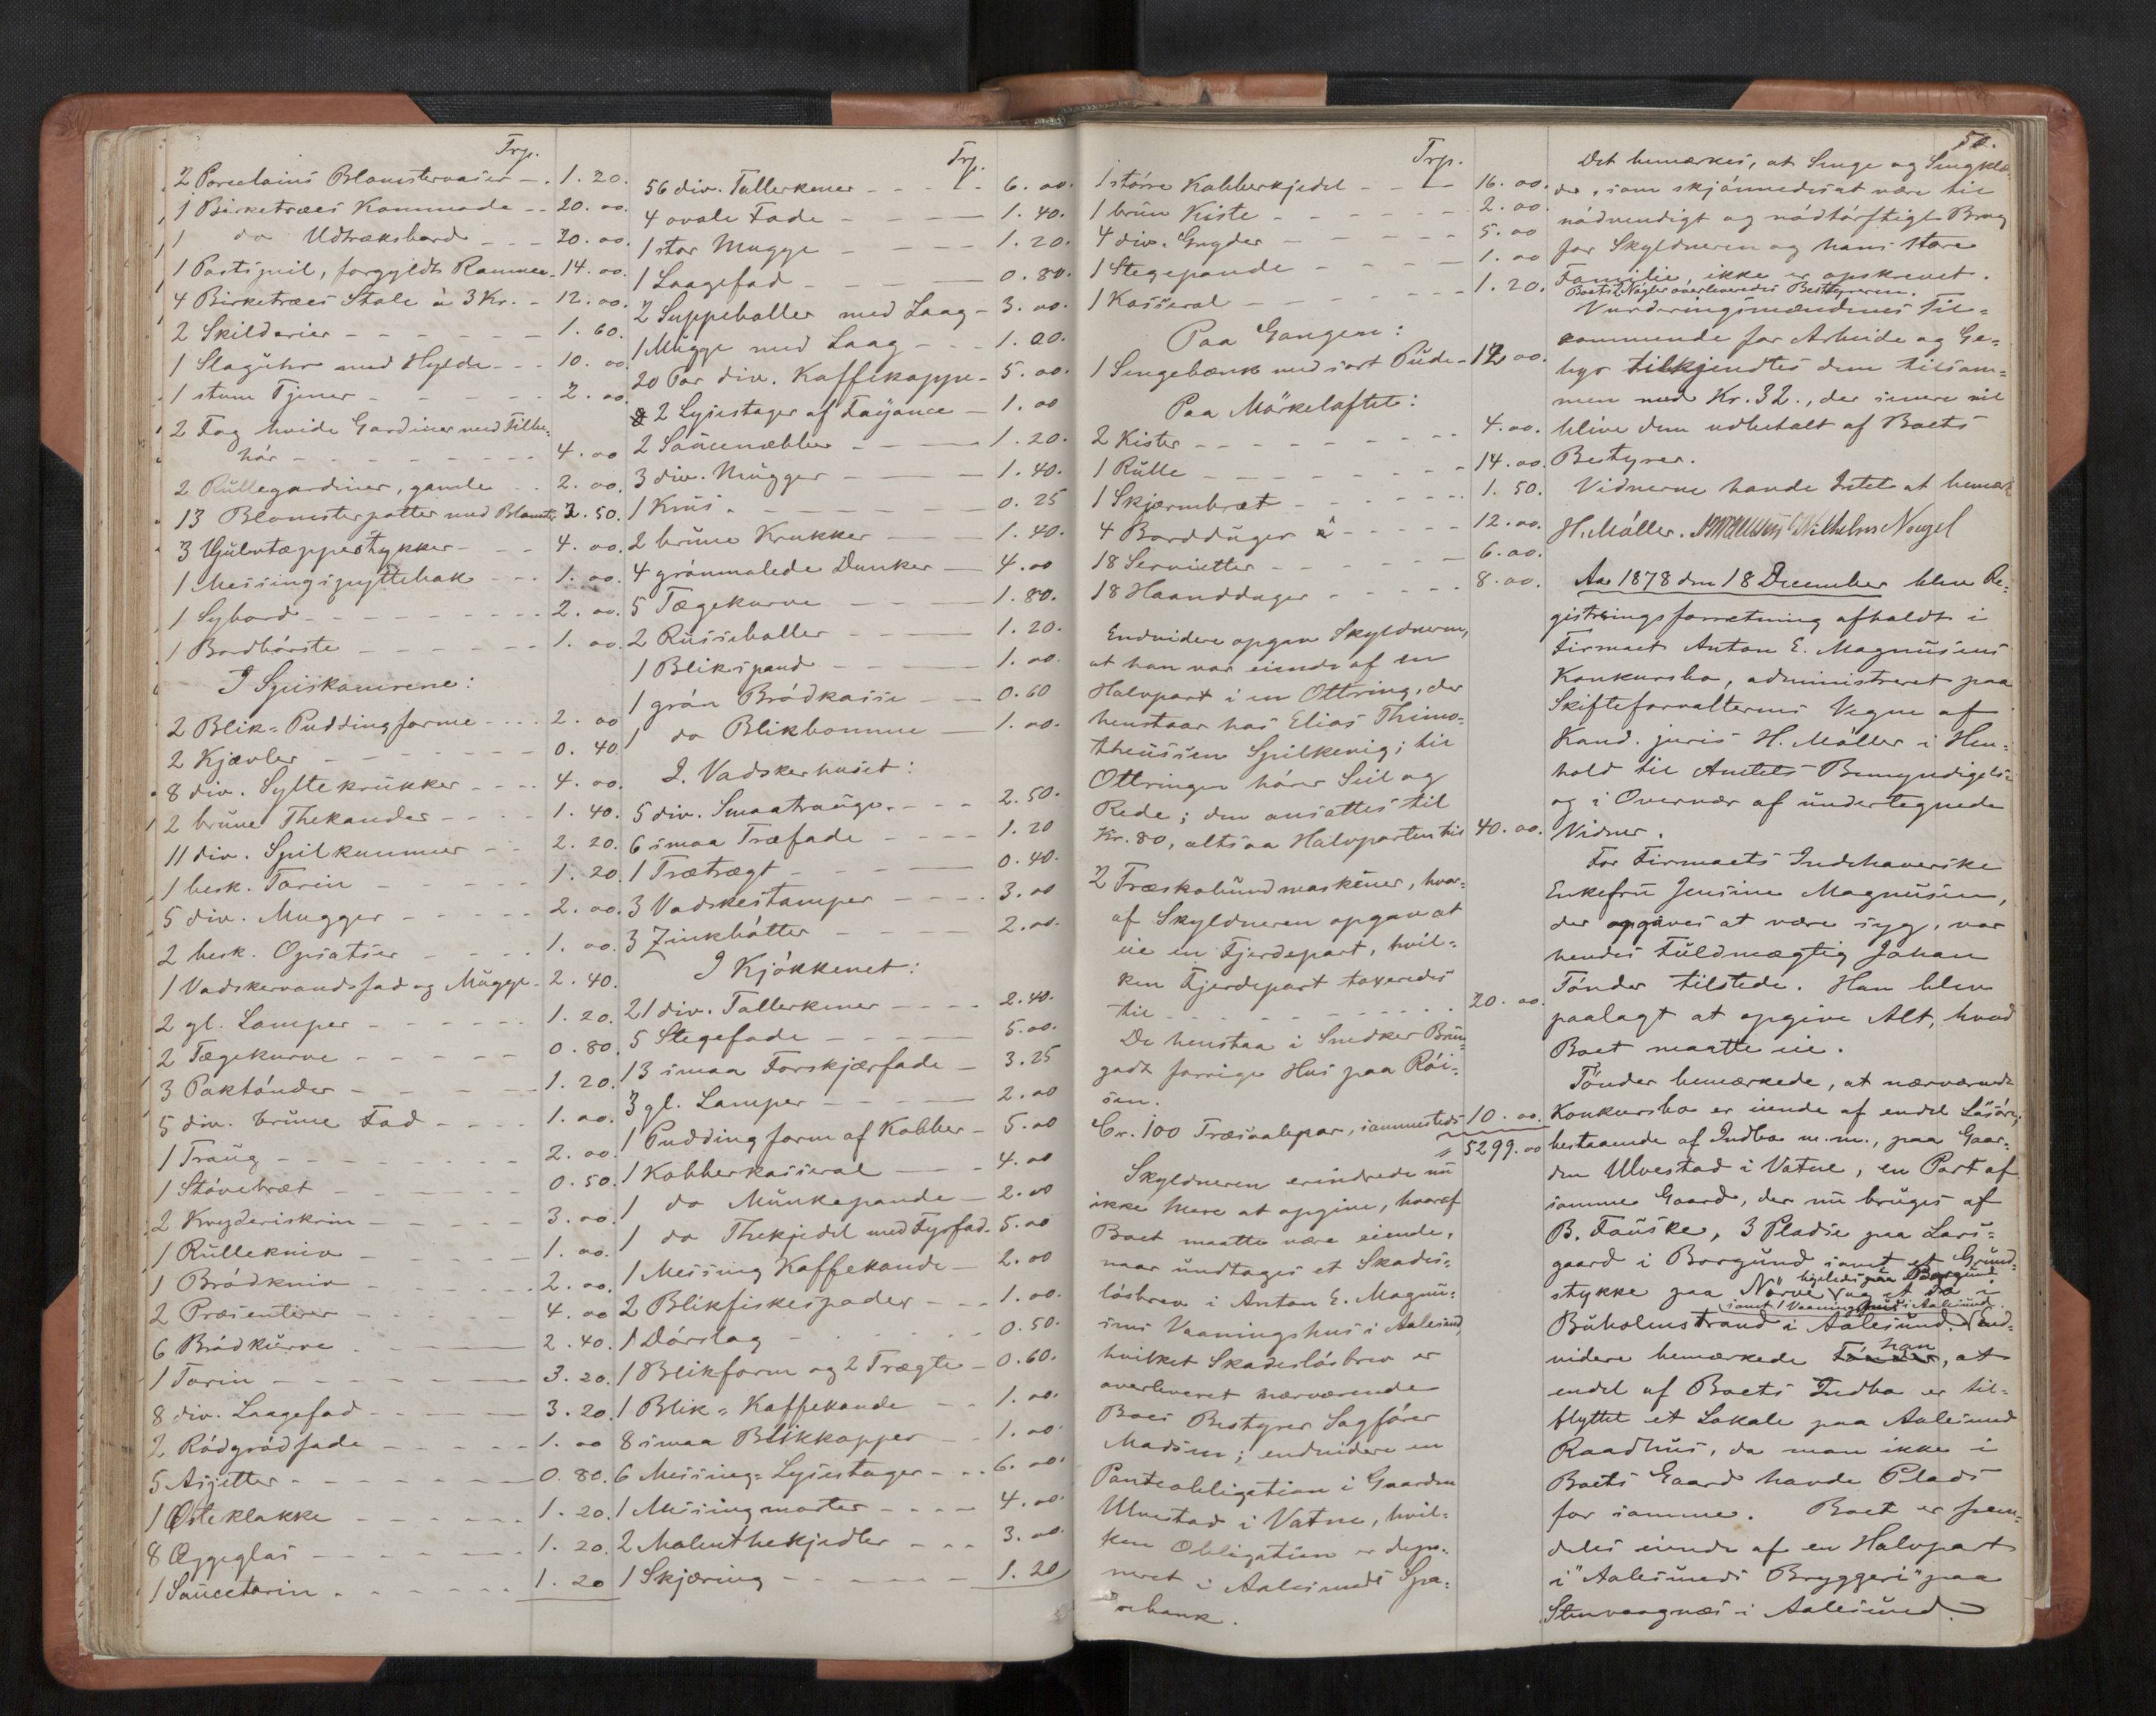 Trp.
2 Porcelains Blomstervaser - . 1. 20.
1 Birketræes Kommode - - 20. 00.
1 do Udtræksbord - - - 20. 00.
1 Postspeil, forgyldt Ramme - 14. 00.
4 Birketræes Stole à 3 Kr. - 12. 00.
2 Skilderier - - - - - - 1. 60.
1 Slaguhr med Hylde - - - 10. 00
1 stum Tjener - - - - - 2. 00.
2 Fag hvide Gardiner med Tilbe=
hör - - - - - - - - 4. 00
2 Rullegardiner, gamle - - 2. 00.
13 Blomsterpotter med Blomster 3. 50.
3 Gulvtæppestykker - - - 4. 00.
1 Messingspyttebak - - - 1. 00.
1 Sybord - - - - - - - - 2. 00.
1 Bordbörste - - - - - - 1. 00
I Spiskamrene:
2 Blik=Puddingforme - - - - 2. 00
2 Kjævler - - - - - - - 0. 40
8 div. Syltekrukker - - - - 4. 00.
2 brune Thekander - - - - 1. 40.
11 div. Spilkummer - - - 2. 20.
1 besk. Tarin - - - - - 1. 20.
5 div. Mugger - - - - - 2. 00.
2 besk. Opsatser - - - - 1. 00.
1 Vadskervandsfad og Mugge - 2. 40.
2 gl. Lamper - - - - - - 1. 20.
2 Tægekurve - - - - - 0. 80.
3 Paktönder - - - - - 1. 20.
5 div. brune Fad - - - - 1. 00.
1 Traug - - - - - - - - 2. 00.
1 Stövebræt - - - - - - 0. 50.
2 Kryderiskrin - - - - - 3. 00.
1 Rullekniv - - - - - - 1. 00.
1 Brödkniv - - - - - - 2. 00.
2 Præsenterer - - - - - 4. 00
6 Brödkurve - - - - - 2. 40.
1 Tarin - - - - - - - - 3. 20.
8 div. Laagefad - - - - - 3. 20.
2 Rödgrödfade - - - - - 1. 00
5 Asjetter - - - - - - - - 0. 80.
1 Osteklokke - - - - - - 1. 20.
8 Æggeglas - - - - - - - 1. 20.
1 Saucetarin - - - - - - - 1. 20
Trp.
56 div. Tallerkener - - - - 6. 00.
4 ovale Fade - - - - - 1. 40.
1 stor Mugge - - - - - 1. 20.
1 Laagefad - - - - - - 0. 80.
2 Suppeboller med Laag - 3. 00.
1 Mugge med Laag - - - 1. 00.
20 Par div. Kaffekoppe - 5. 00.
2 Lysestager af Fayance - 1. 00
2 Saucenæbber - - - - 1. 20.
3 div. Mugger - - - - 1. 40.
1 Krus - - - - - - - 0. 25
2 brune Krukker - - - - 1. 40.
4 grönmalede Dunker - 4. 00
5 Tægekurve - - - - - 1. 80.
2 Russeboller - - - - - 1. 20.
1 Blikspand - - - - - 1. 00.
1 grön Brödkasse - - - 0. 60
1 do Blikbomme - - - 1. 00.
I. Vadskerhuset:
5 div. Smaatrauge - - - - 2. 50.
6 smaa Træfade - - - - 1. 20
1 Trætragt - - - - - - 0. 40.
3 Vadskestamper - - - - 3. 00
3 Zinkbötter - - - - - 2. 00.
I Kjökkenet:
21 div. Tallerkener - - - - 2. 40.
5 Stegefade - - - - - - 5. 00.
13 smaa Forskjærfade - 3. 25
3 gl. Lamper - - - - - 2. 00
1 Puddingform af Kobber - 5. 00
1 Kobberkasserol - - - 4. 00
1 do Munkepande - 2. 00
1 do Thekjedel med Fyrfad - 5. 00
1 Messing Kaffekande - 2. 00
2 Blikfiskespader - - - 1. 00.
1 Dörslag - - - - - - 0. 50.
1 Blikform og 2 Trægte - 0. 60.
1 Blik=Kaffekande - - 1. 00.
8 smaa Blikkopper - - 1. 00.
6 Messing=Lysestager - - - 6. 00.
1 Messingmorter - - - - 4. 00.
2 Malmthekjedler - - - 3. 00
1 Skjæring - - - - - - 1. 20
Trp.
1 större Kobberkjedel - - - 16. 00.
1 brun Kiste - - - - - - 2. 00.
4 div. Gryder - - - - - 5. 00
1 Stegepande - - - - - 1. 00
1 Kasserol - - - - - - - 1. 20.
Paa Gangen:
1 Sengebænk med sort Pude - 12 00.
Paa Mörkeloftet:
2 Kister - - - - - - - - 4. 00.
1 Rulle - - - - - - - - 14. 00.
1 Skjærmbræt - - - - - - 1. 50.
4 Bordduger - - - - - 12. 00.
18 Servietter - - - - - - 6. 00.
18 Haandduger - - - - - 8. 00.
Endvidere opgav Skyldneren,
at han var eiende af en
Halvpart i en Ottring, der
henstaar hos Elias Thimo=
theussen Spilkevig; til
Ottringen hörer Seil og
Rede; den ansattes til
Kr. 80, altsaa Halvparten til 40. 00.
2 Træskobundmaskiner, hvor=
af Skyldneren opgav at
eie en Fjerdepart, hvil=
ken Fjerdepart taxeredes
til - - - - - - - - - - 20. 00.
De henstaa i Snedker Brun=
gadt forrige Hus paa Röi=
sen.
Cr. 100 Træsaalepar, sammesteds 10. 00.
5299. 00
Skyldneren erindrede nu
ikke mere at opgive, hvoraf
Boet maatte være eiende,
naar undtages et Skades=
lösbrev i Anton E. Magnu=
sens Vaaningshus i Aalesund,
hvilket Skadeslösbrev er
overleveret nærværende
Boes Bestyrer Sagförer
Madsen; endvidere en
Panteobligation i Gaarden
Ulvestad i Vatne, hvil=
ken Obligation er depo=
neret i Aalesunds Spa=
rebank.
50.
Det bemærkes, at Senge og Sengklæ=
der, som skjönnedes at være til
nödvendigt og nödtörftigt Brug
for Skyldneren og hans store
Familie, ikke er opskrevet.
Boets 2 Nögler overleveredes Bestyreren.
Vurderingsmændenes Til=
kommende for Arbeide og Ge=
byr tilkjendtes dem tilsam=
men med Kr. 32., der senere vil
blive dem udbetalt af Boets
Bestyrer.
Vidnerne havde Intet at bemærke
H. Möller. Wilhelm Nougel
Aar 1878 den 18 December blev Re=
gistringsforretning afholdt i
Firmaet Anton E. Magnusens
Konkursbo, administreret paa
Skifteforvalterens Vegne af
Kand. juris H. Möller i Hen=
hold til Amtets Bemyndigelse
og i Overvær af undertegnede
Vidner.
For Firmaets Indehaverske
Enkefru Jensine Magnusen,
der opgaves at være syg, var
hendes Fuldmægtig Johan
Tönder tilstede. Han blev
paalagt at opgive Alt, hvad
Boet maatte eie.
Tönder bemærkede, at nærværende
Konkursbo er eiende af endel Lösöre,
bestaaende af Indbo m.m., paa Gaar=
den Ulvestad i Vatne, en Part af
samme Gaard, der nu bruges af
B. Fauske, 3 Pladse paa Lars=
gaard i Borgund samt et Grund=
stykke paa Nörve ligeledes paa Borgund og et do i
Buholmstrand i Aalesund. samt 1 Vaaningshus i Aalesund. End=
videre bemærkede Tönder han, at
endel af Boets Indbo er til=
flyttet et Lokale paa Aalesund
Raadhus, da man ikke i
Boets Gaard havde Plads
for samme. Boet er frem=
deles eiende af en Halvpart
i "Aalesunds Bryggeri" paa
Stenvaagnæs i Aalesund.